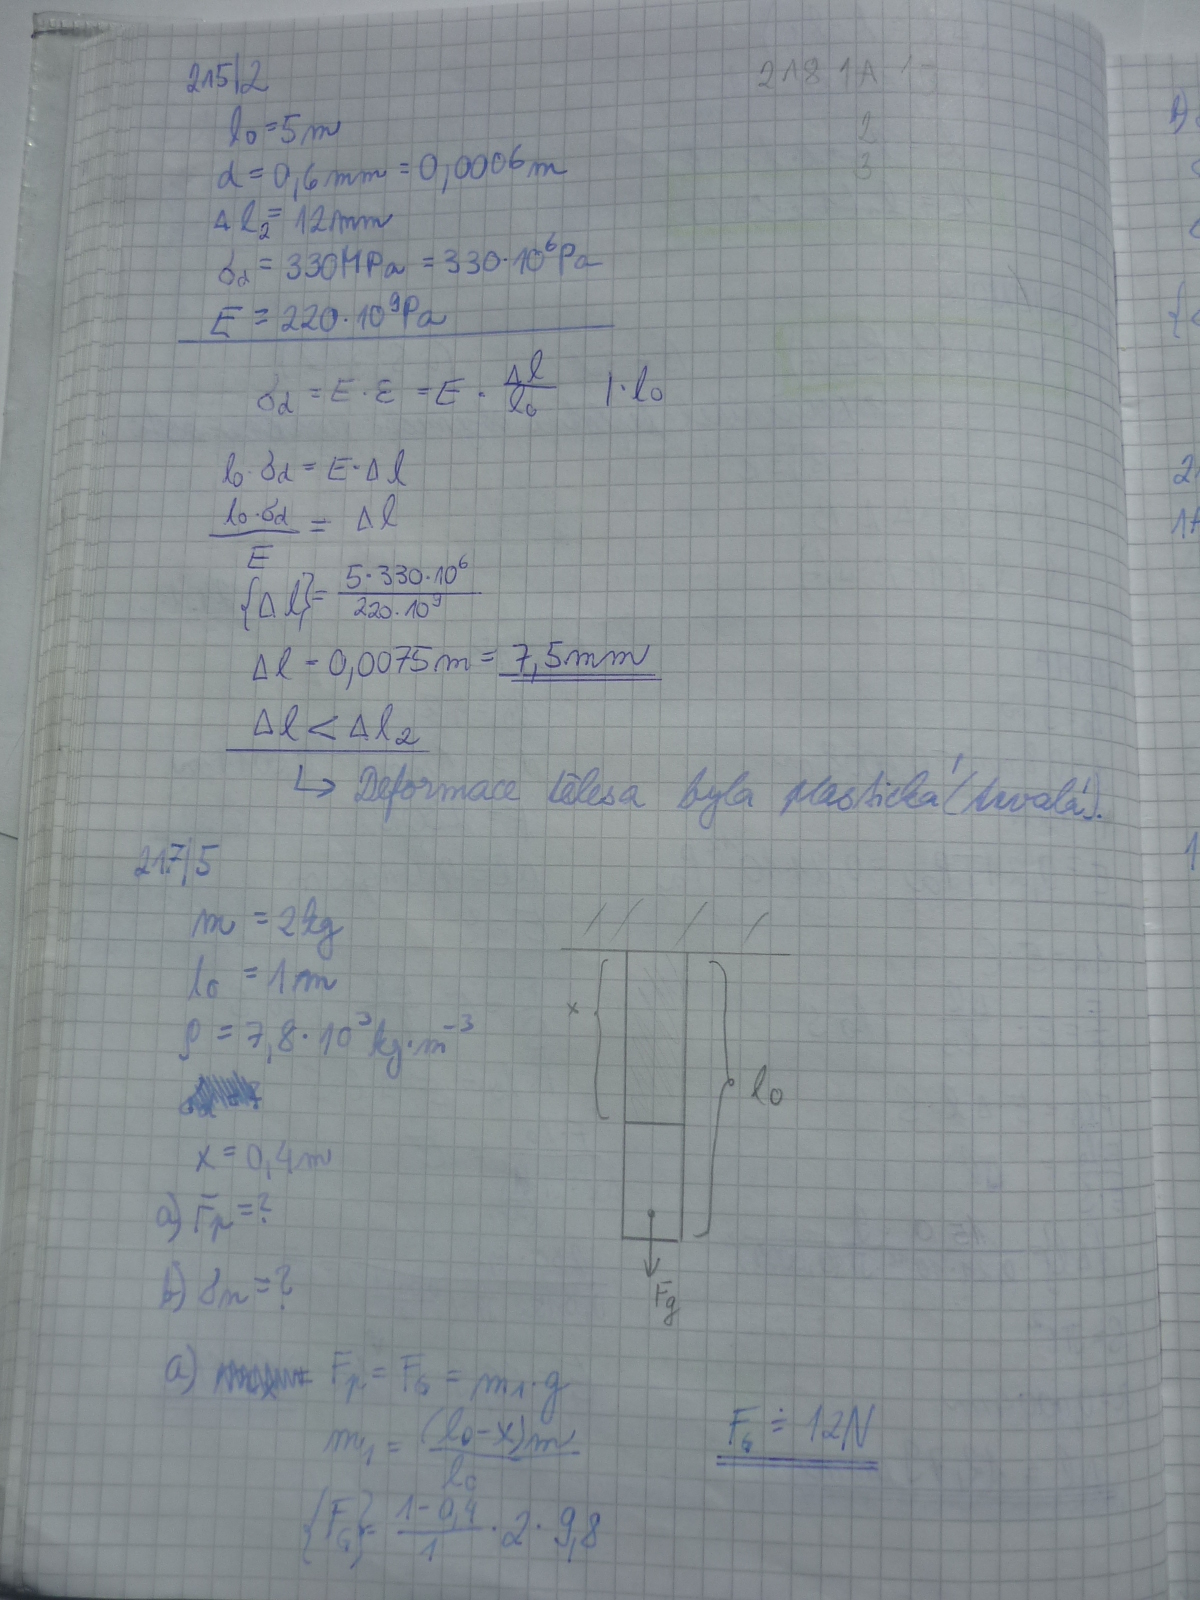 215/2
l₀ = 5 m
d = 0,6 mm = 0,0006 m
Δl₂ = 12 mm
σd = 330 MPa = 330·10⁶ Pa
E = 220·10⁹ Pa
σd = E·ε = E · Δl/l₀ |·l₀
l₀·σd = E·Δl
l₀·σd/E = Δl
{Δl} = 5·330·10⁶/220·10⁹
Δl = 0,0075 m = 7,5 mm
Δl < Δl₂
↳ Deformace tělesa byla plastická (trvalá).
218 1A
2
3
217/5
m = 2 kg
l₀ = 1 m
ρ = 7,8·10³ kg·m⁻³
x = 0,4 m
a) Fp = ?
b) σn = ?
x
l₀
Fg
a) Fp = FG = m₁·g
m₁ = (l₀-x)m/l₀
{FG} = 1-0,4/1 · 2 · 9,8
FG ≐ 12 N